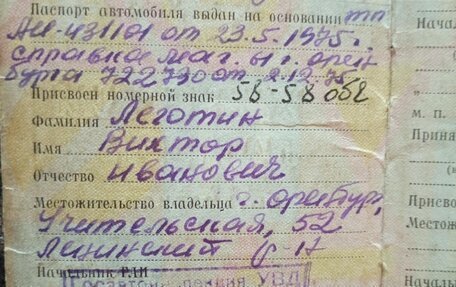 Паспорт автомобиля выдан на основании тп Нача
АИ-431101 от 23.5.1975 г.
справка маг. г. Орен
бурга 722730 от 2.12.75
Присвоен номерной знак 56-58 ОБ2
м. п.
Фамилия Леготин Приня
Имя Виктор
Отчество Иванович Присво
Местожительство владельца г. Оренбур, Место
Учительская, 52
Ленинский р-н
Начальник ГАИ Началь
Госавтоинспекция УВД